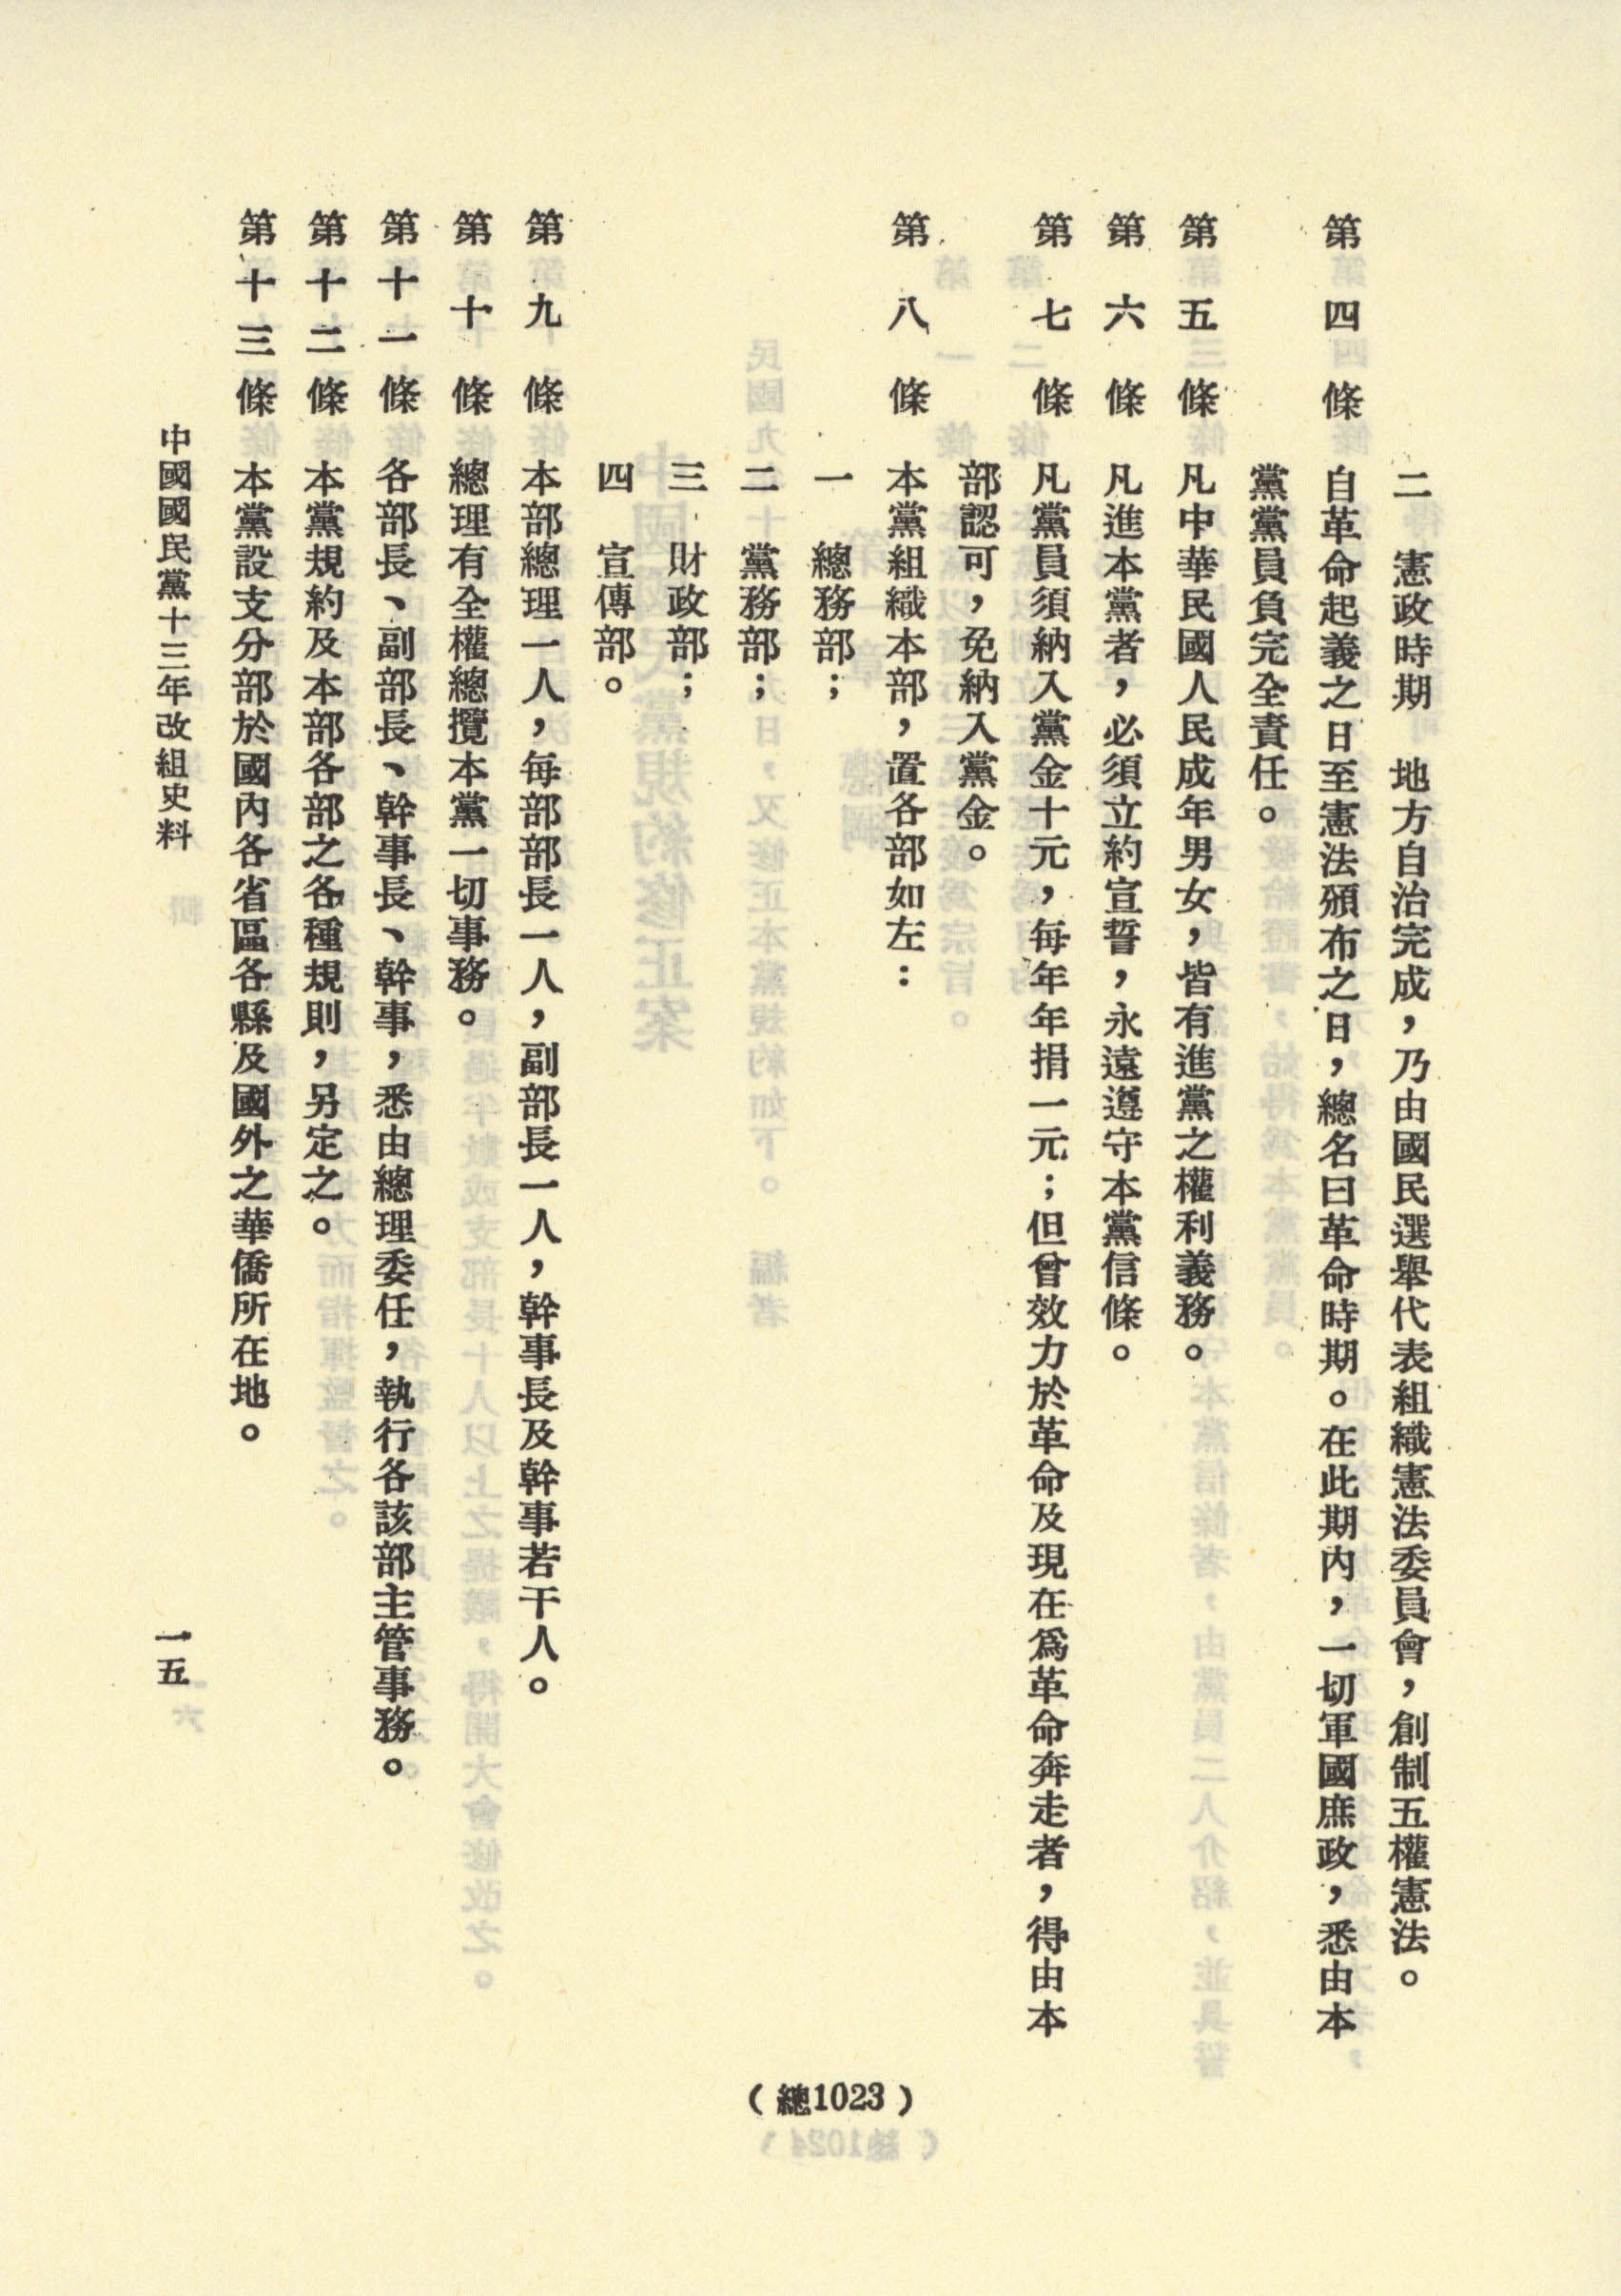 二　憲政時期　地方自治完成，乃由國民選舉代表組織憲法委員會，創制五權憲法。
第四條　自革命起義之日至憲法頒布之日，總名曰革命時期。在此期內，一切軍國庶政，悉由本
黨黨員負完全責任。
第五條　凡中華民國人民成年男女，皆有進黨之權利義務。
第六條　凡進本黨者，必須立約宣誓，永遠遵守本黨信條。
第七條　凡黨員須納入黨金十元，每年年捐一元；但曾效力於革命及現在爲革命奔走者，得由本
部認可，免納入黨金。
第八條　本黨組織本部，置各部如左：
一　總務部；
二　黨務部；
三　財政部；
四　宣傳部。
第九條　本部總理一人，每部部長一人，副部長一人，幹事長及幹事若干人。
第十條　總理有全權總攬本黨一切事務。
第十一條　各部長、副部長、幹事長、幹事，悉由總理委任，執行各該部主管事務。
第十二條　本黨規約及本部各部之各種規則，另定之。
第十三條　本黨設支分部於國內各省區各縣及國外之華僑所在地。
中國國民黨十三年改組史料　一五
（總1023）